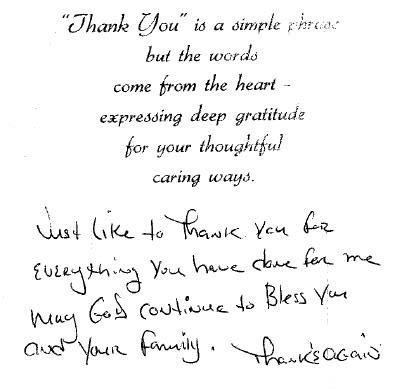 "Thank You" is a simple phrase
but the words
come from the heart -
expressing deep gratitude
for your thoughtful
caring ways.
Just like to Thank You for
everything You have done for me
may God continue to Bless You
and Your family. Thank's Again